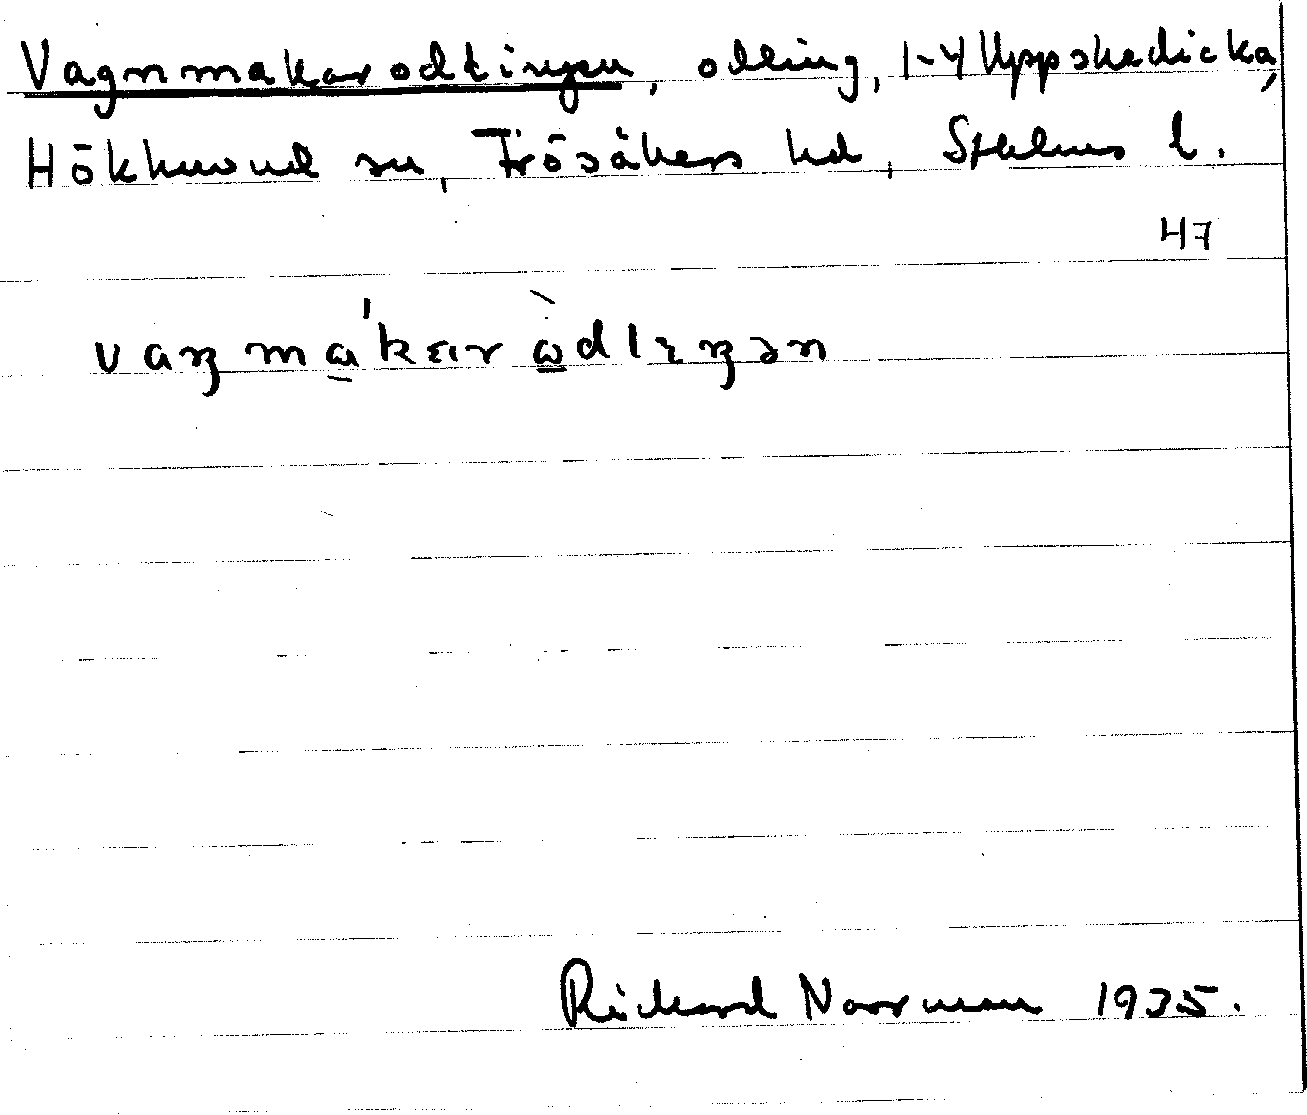 Vagnmakarodlingen, odling, 1-4 Uppskedicka,
Hökhuvud sn, Frösåkers hd, Sthlms l.
H7
vaŋmakarɷdlɩŋən
Rickard Norrman 1935.